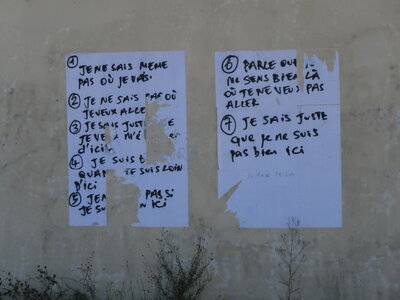 1 JE NE SAIS MEME
PAS OÙ JE VAIS.
2 JE NE SAIS PAS OÙ
JE VEUX ALLER
3 JE SAIS JUSTE
JE VEUX M'
d'ici
4 JE SUIS
QUAN JE SUIS LOIN
D'ICI
5 JE PAS SI
JE SU ICI
6 PARLE QUE JE
ME SENS BIEN LÀ
OÙ JE NE VEUX PAS
ALLER
7 JE SAIS JUSTE
que je ne suis
pas bien ici